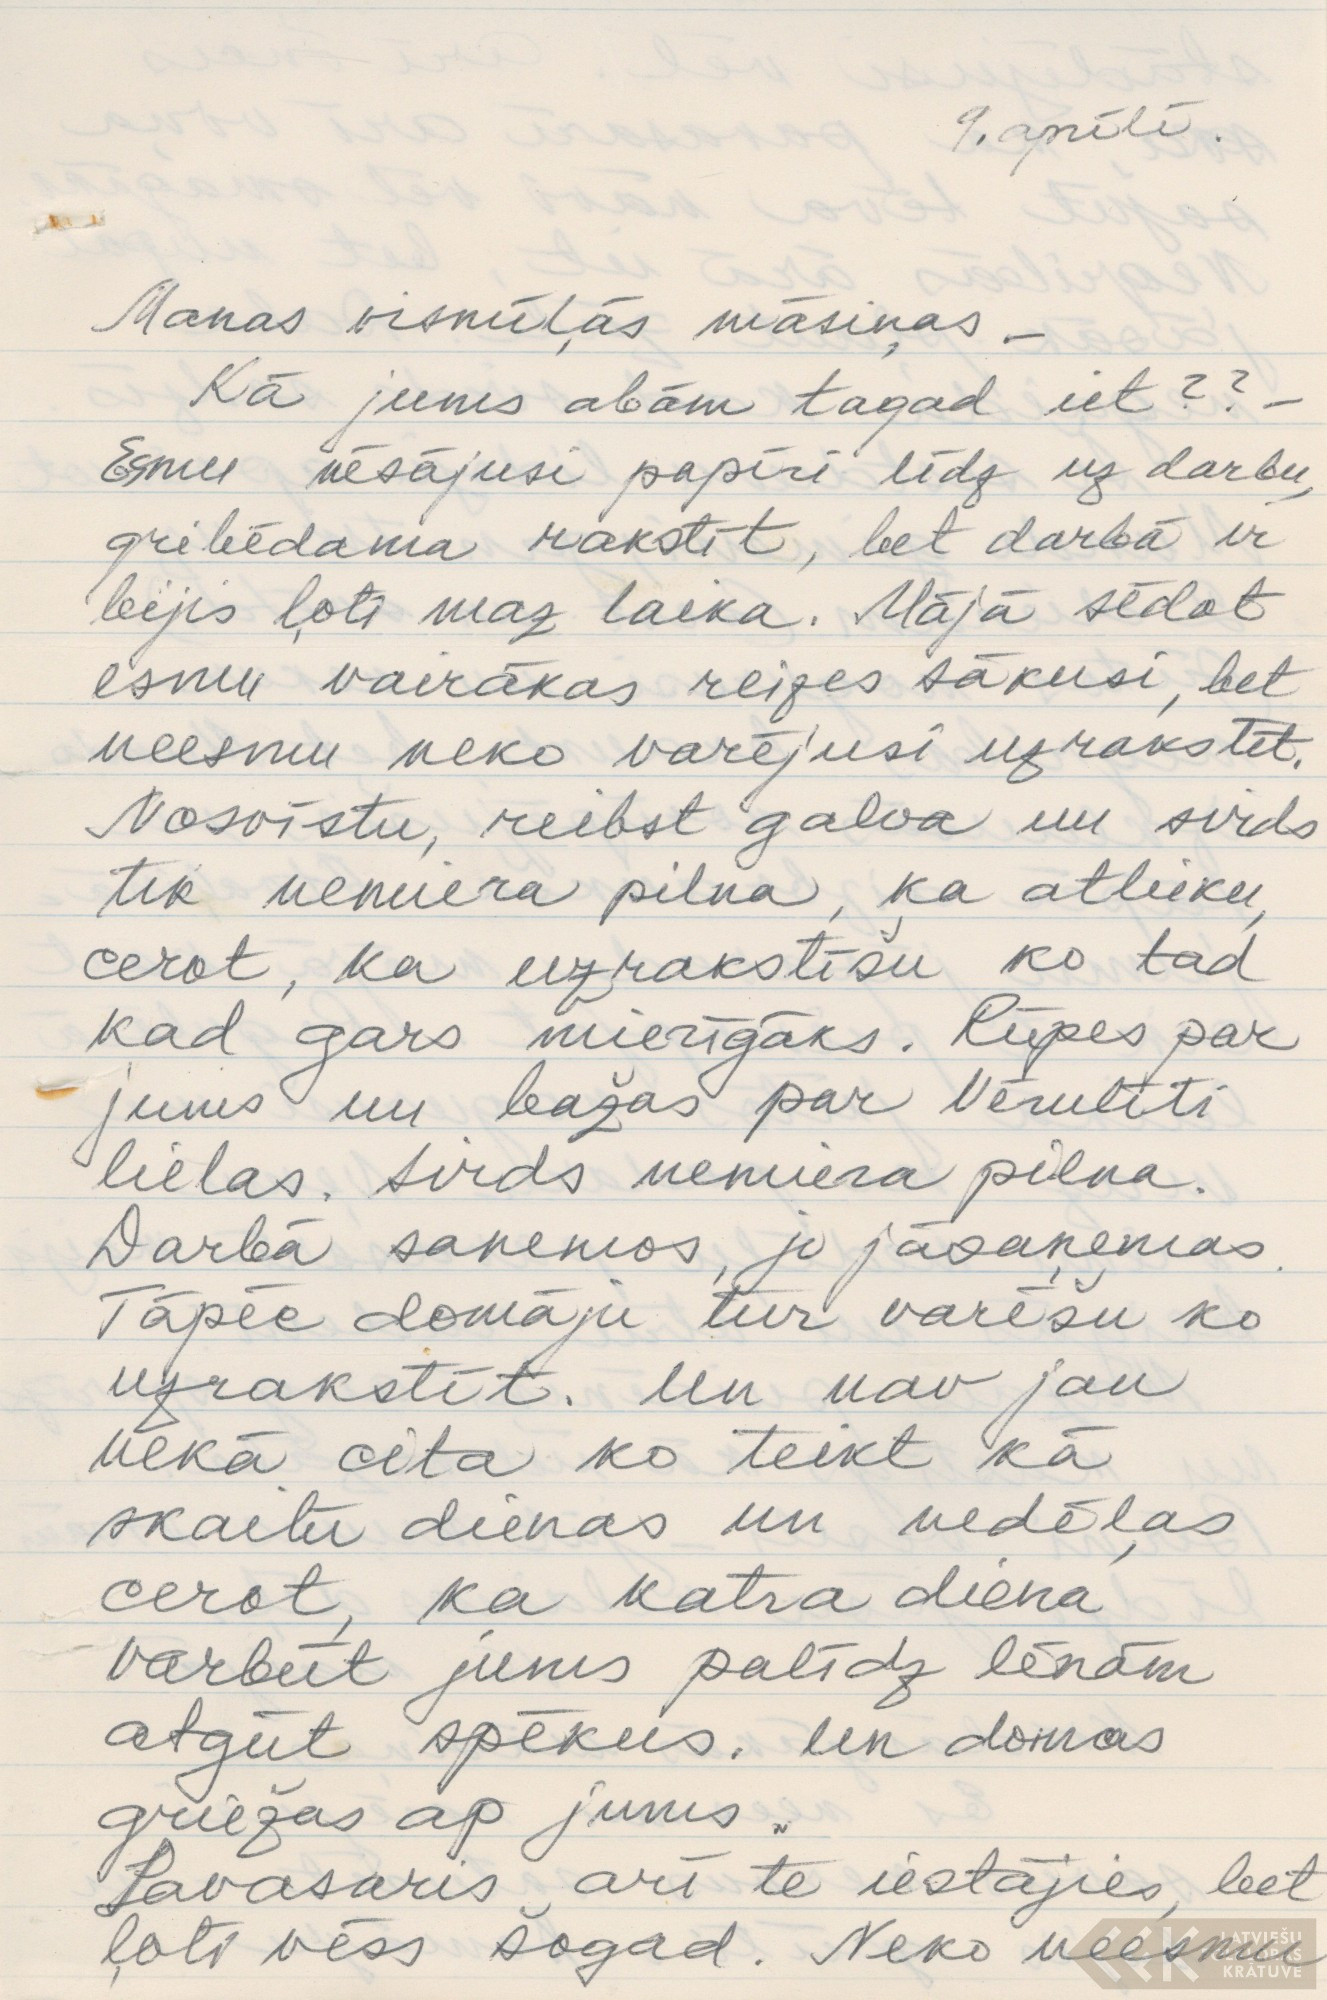 9. aprīlī.
Manas vismīļās māsiņas –
Kā jums abām tagad iet?? –
Esmu nēsājusi papīri līdz uz darbu,
gribēdama rakstīt, bet darbā ir
bijis ļoti maz laika. Mājā sēdot
esmu vairākas reizes sākusi, bet
neesmu neko varējusi uzrakstīt.
Nosvīstu, reibst galva un sirds
tik nemiera pilna, ka atlieku,
cerot, ka uzrakstīšu ko tad
kad gars mierīgāks. Rūpes par
jums un bažas par Vērulīti
lielas. Sirds nemiera pilna.
Darbā saņemos, jo jāsaņemas.
Tāpēc domāju tur varēšu ko
uzrakstīt. Un nav jau
nekā cita ko teikt kā
skaitu dienas un nedēļas
cerot, ka katra diena
varbūt jums palīdz lēnām
atgūt spēkus. Un domas
griežas ap jums.
Pavasaris arī te iestājies, bet
ļoti vēss šogad. Neko neesmu
LATVIEŠU
KRĀTUVE